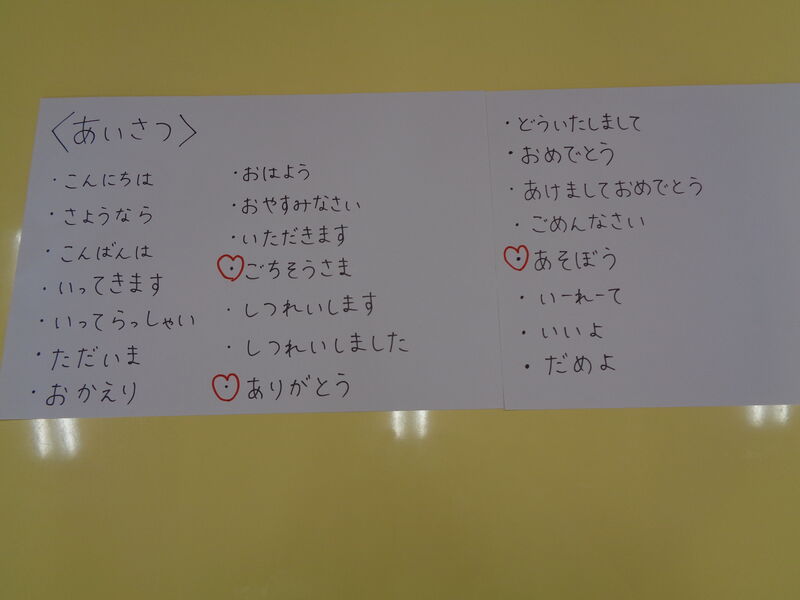 〈あいさつ〉
・こんにちは
・さようなら
・こんばんは
・いってきます
・いってらっしゃい
・ただいま
・おかえり
・おはよう
・おやすみなさい
・いただきます
・ごちそうさま
・しつれいします
・しつれいしました
・ありがとう
・どういたしまして
・おめでとう
・あけましておめでとう
・ごめんなさい
・あそぼう
・いーれーて
・いいよ
・だめよ